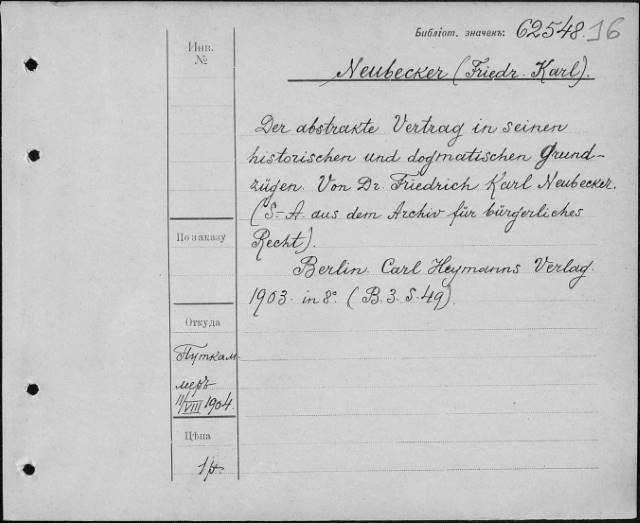 Библіот. значекъ: 62548. 16
Инв.
№
Neubecker (Friedr. Karl).
Der abstrakte Vertrag in seinen
historischen und dogmatischen Grund-
zügen. Von Dr. Friedrich Karl Neubecker.
(S.-A. aus dem Archiv für bürgerliches
Recht).
Berlin. Carl Heymanns Verlag.
1903. in 8º. (B. 3. S. 49).
По заказу
Откуда
Путкам-
меръ
11/VIII 1904.
Цѣна
1 р.